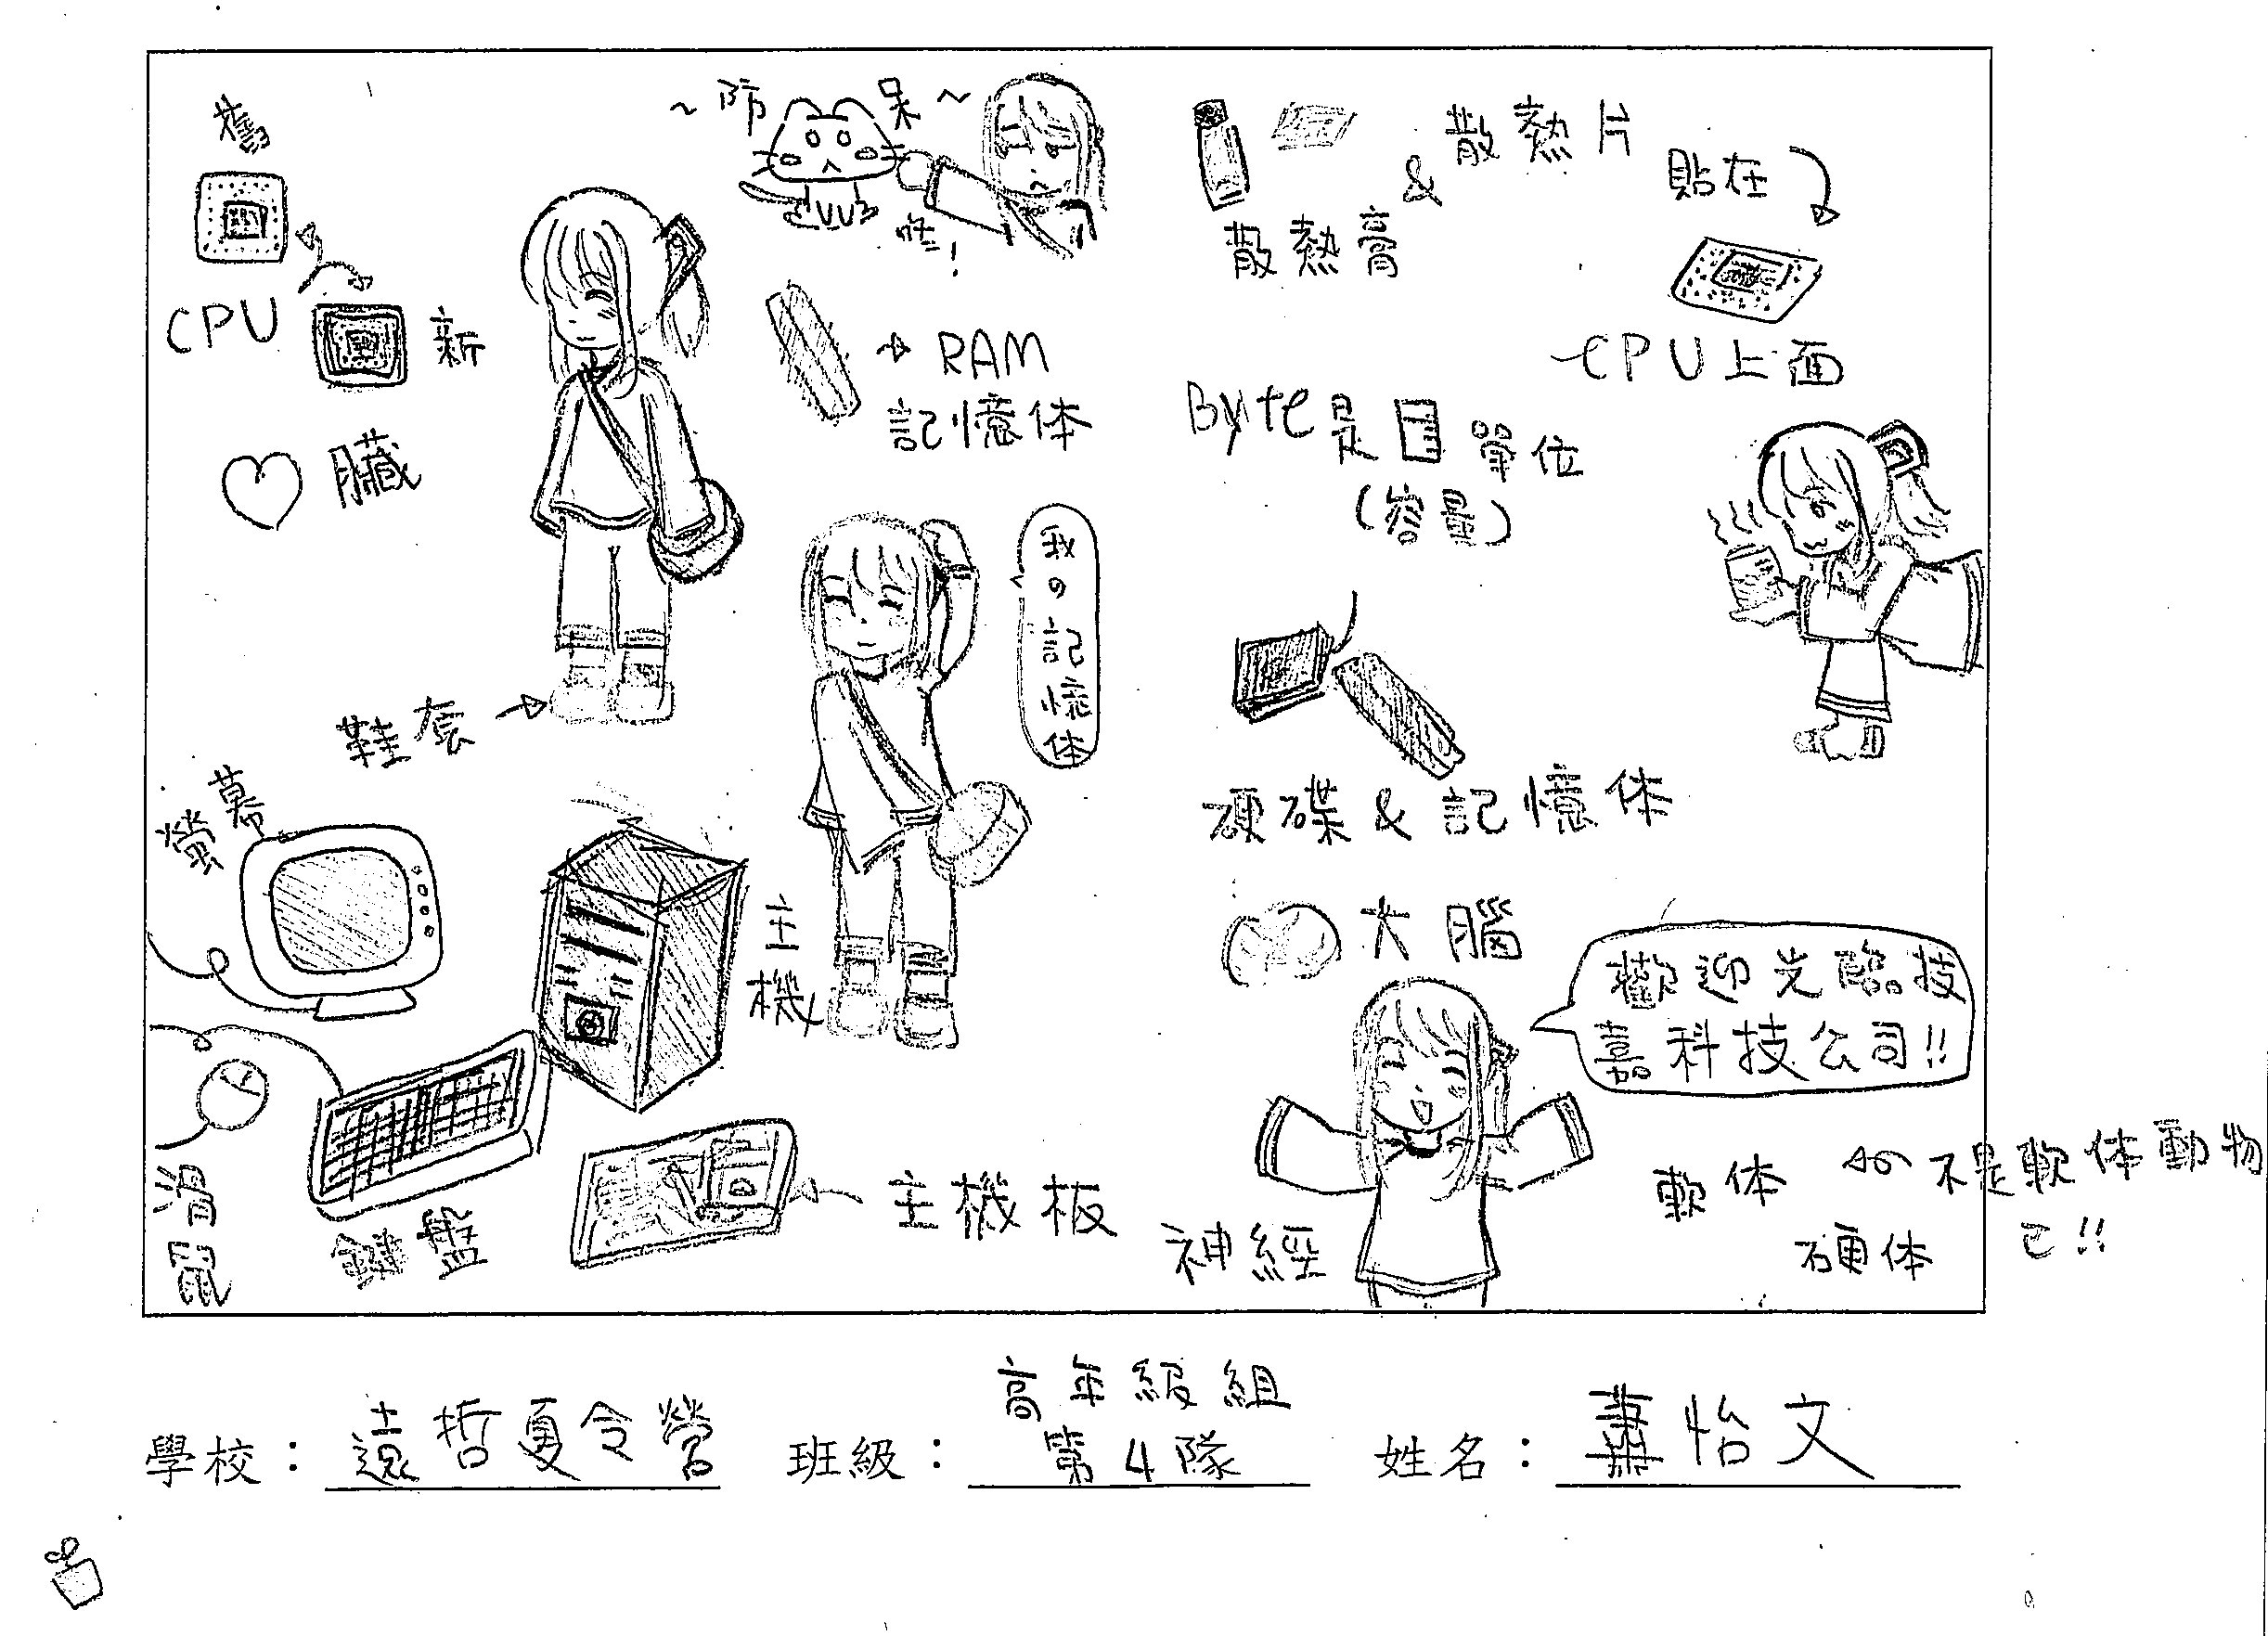 舊
CPU
新
心臟
鞋套
~防呆~
RAM
記憶体
我の記憶体
散熱膏
&
散熱片
貼在
CPU上面
Byte是
單位
(容量)
硬碟&記憶体
大腦
歡迎光臨技
嘉科技公司!!
螢幕
主機
滑鼠
鍵盤
主機板
神經
軟体
不是軟体動物
己!!
硬体
學校：遠哲夏令營
班級：高年級組
第4隊
姓名：蕭怡文